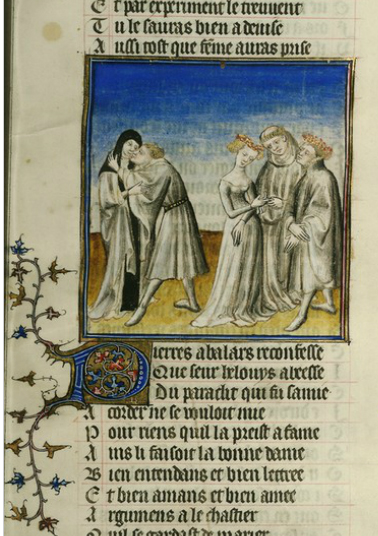 Et par experiment le treuvent
Tu le sauras bien a deuise
Aussi tost que feme auras prise
Pierres abalars reconfesse
Que seur heloys abeesse
Du paraclit qui fu samie
Acorder ne se vouloit mie
Pour riens quil la preist a fame
Ains li faisoit la bonne dame
Bien entendans et bien lettree
Et bien amans et bien amee
Argumens a le chastier
Quil se gardast de marier